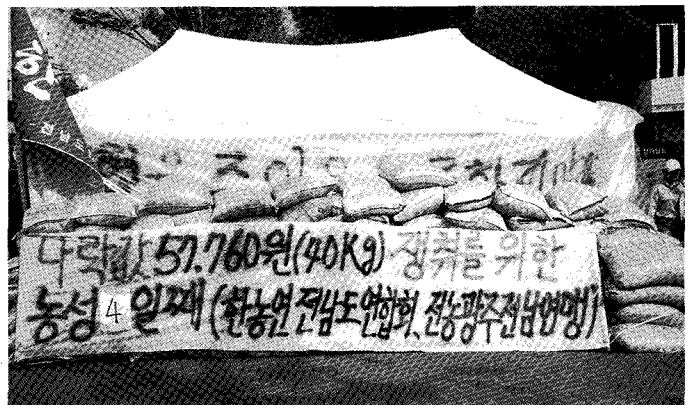 나락값 57.760원(40Kg) 쟁취를 위한
농성 4 일째 (한농연 전남도연합회, 전농광주전남연맹)